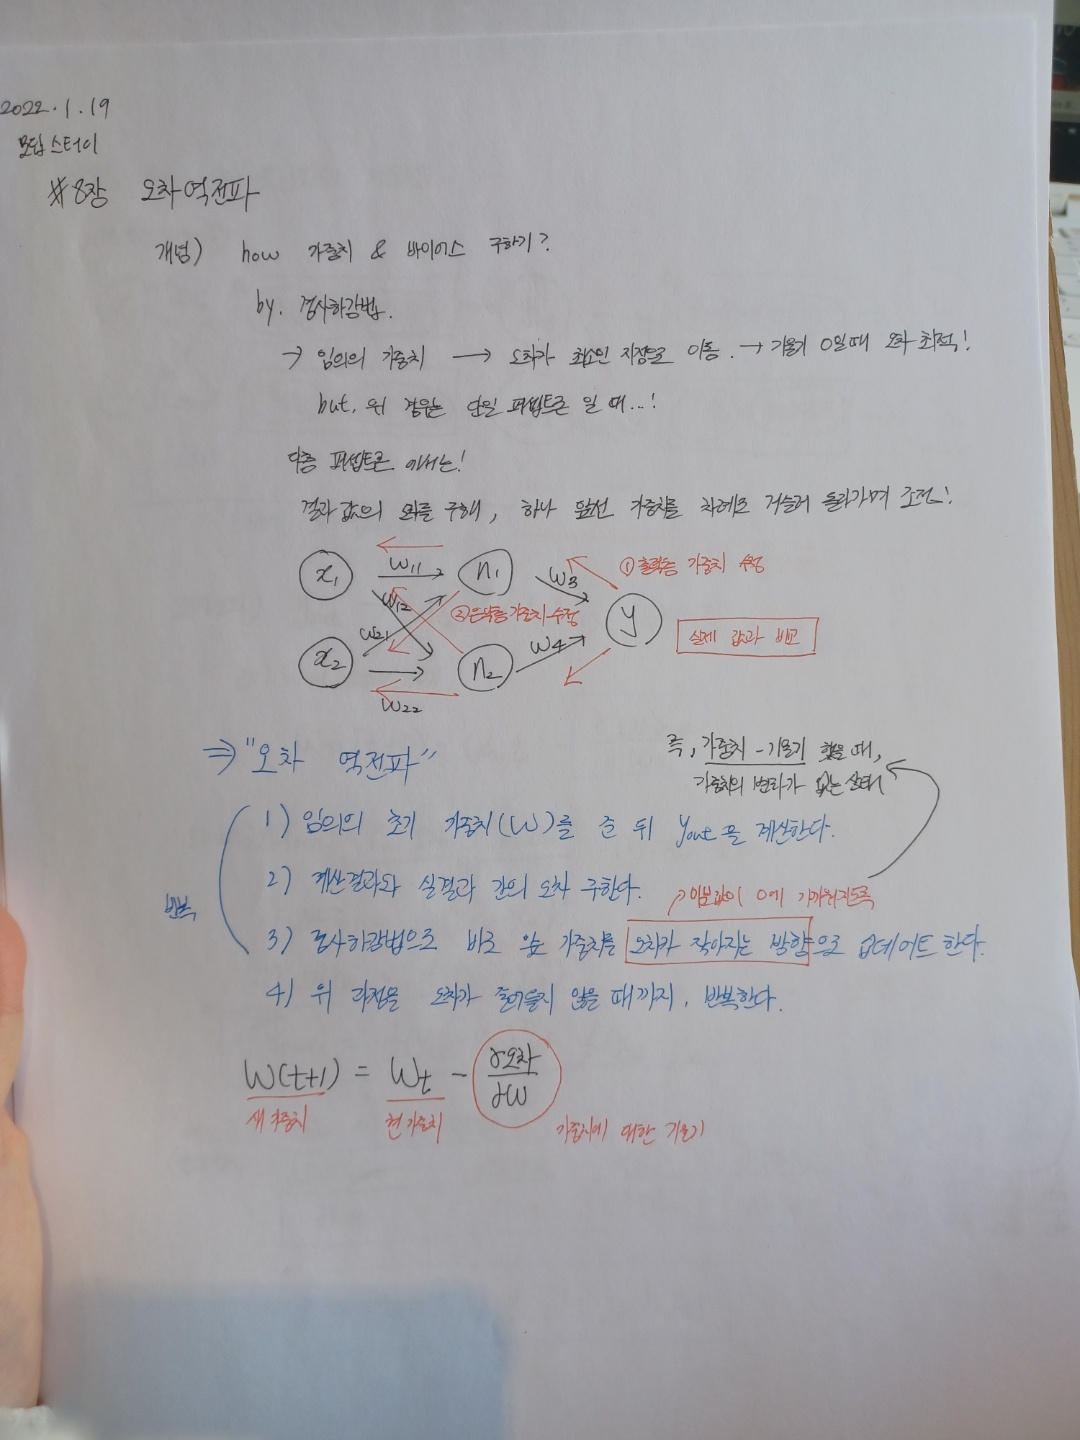 2022.1.19
모답스터디
#8장 오차역전파
개념) how 가중치 & 바이어스 구하기?
by. 경사하강법.
→ 임의의 가중치 → 오차가 최소인 지점으로 이동. → 기울기 0일때 오차 최적!
but, 위 경우는 단일 퍼셉트론 일 때...!
다층 퍼셉트론 에서는!
결과값의 오차를 구해, 하나 앞선 가중치를 차례로 거슬러 올라가며 조정!
x₁ W₁₁ n₁ W₃ ① 출력층 가중치 수정
W₁₂ ② 은닉층 가중치 수정 y 실제 값과 비교
W₂₁ W₄
x₂ W₂₂ n₂
⇒ "오차 역전파"
즉, 가중치 - 기울기 했을 때,
가중치의 변화가 없는 상태
1) 임의의 초기 가중치(W)를 준 뒤 Yout을 계산한다.
2) 계산결과와 실결과 간의 오차 구한다.
→ 미분값이 0에 가까워지도록
반복
3) 경사하강법으로 바로 앞 가중치를 오차가 작아지는 방향으로 업데이트 한다.
4) 위 과정을 오차가 줄어들지 않을 때까지, 반복한다.
W(t+1) = Wt - ∂오차/∂W
새 가중치 현 가중치 가중치에 대한 기울기